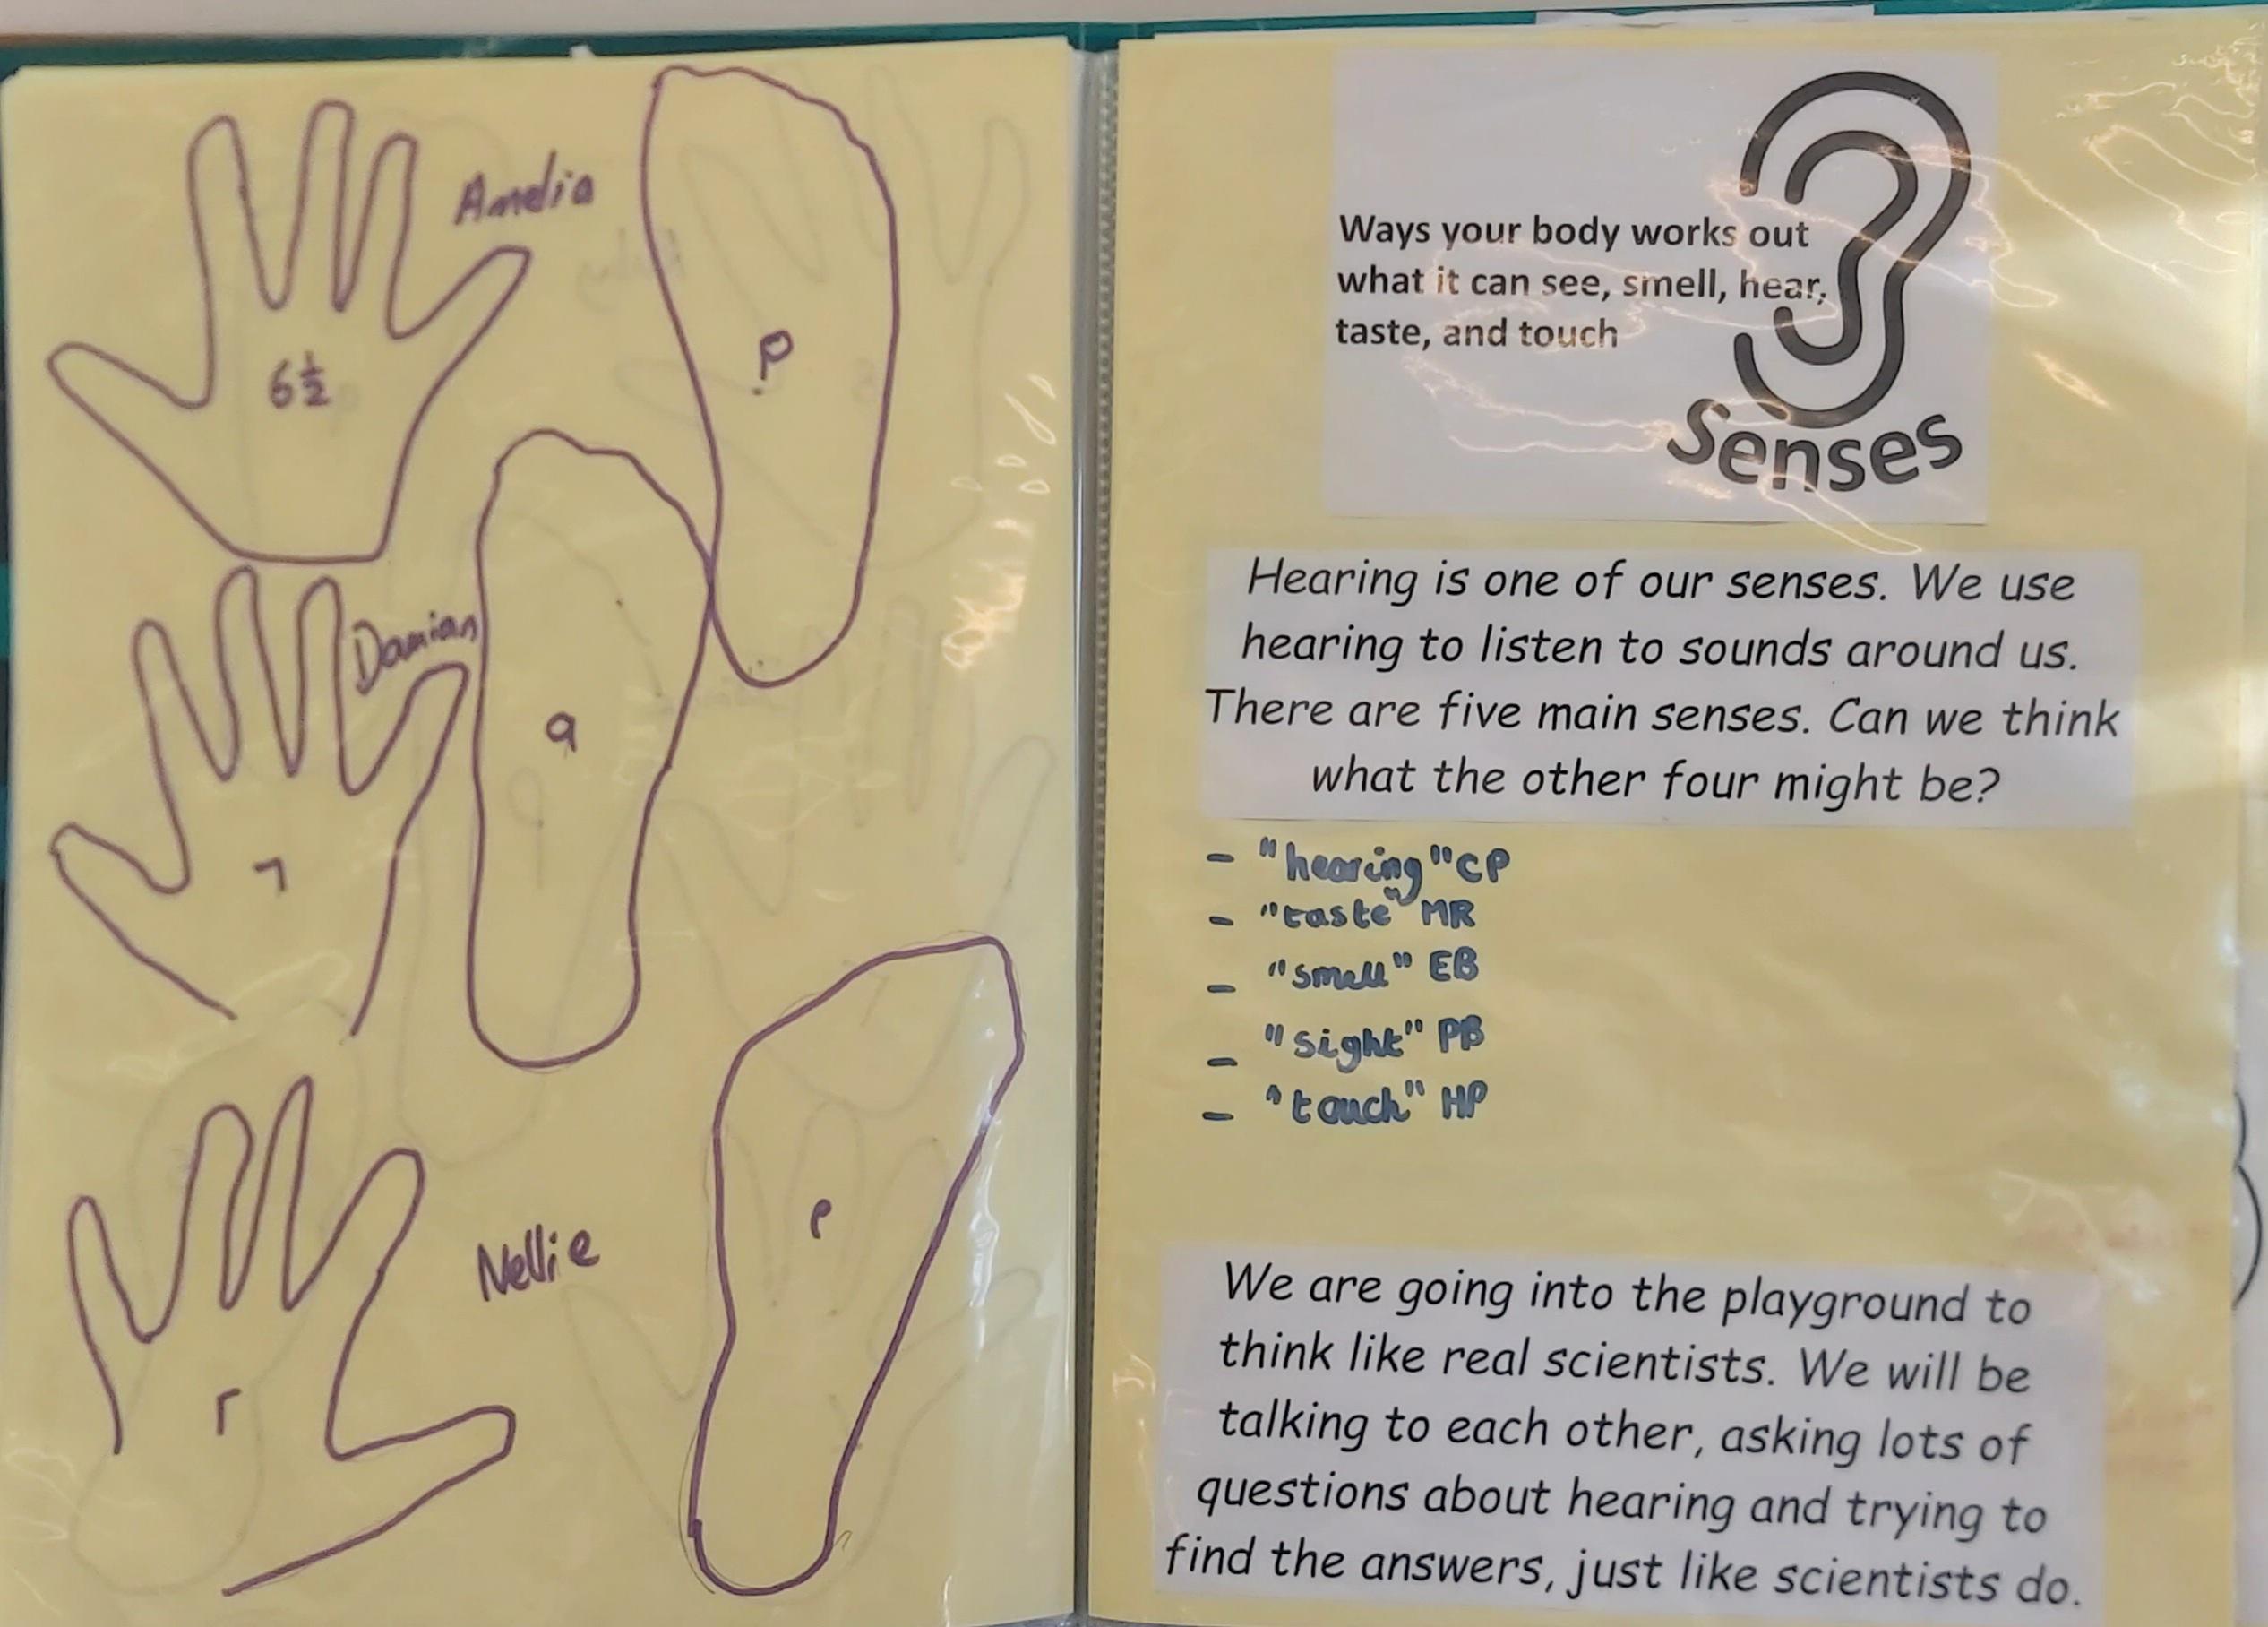 Amelia
6½
Damian
9
7
Nellie
Ways your body works out
what it can see, smell, hear,
taste, and touch
Senses
Hearing is one of our senses. We use
hearing to listen to sounds around us.
There are five main senses. Can we think
what the other four might be?
- "hearing" CP
- "taste" MR
- "smell" EB
- "sight" PB
- "touch" HP
We are going into the playground to
think like real scientists. We will be
talking to each other, asking lots of
questions about hearing and trying to
find the answers, just like scientists do.